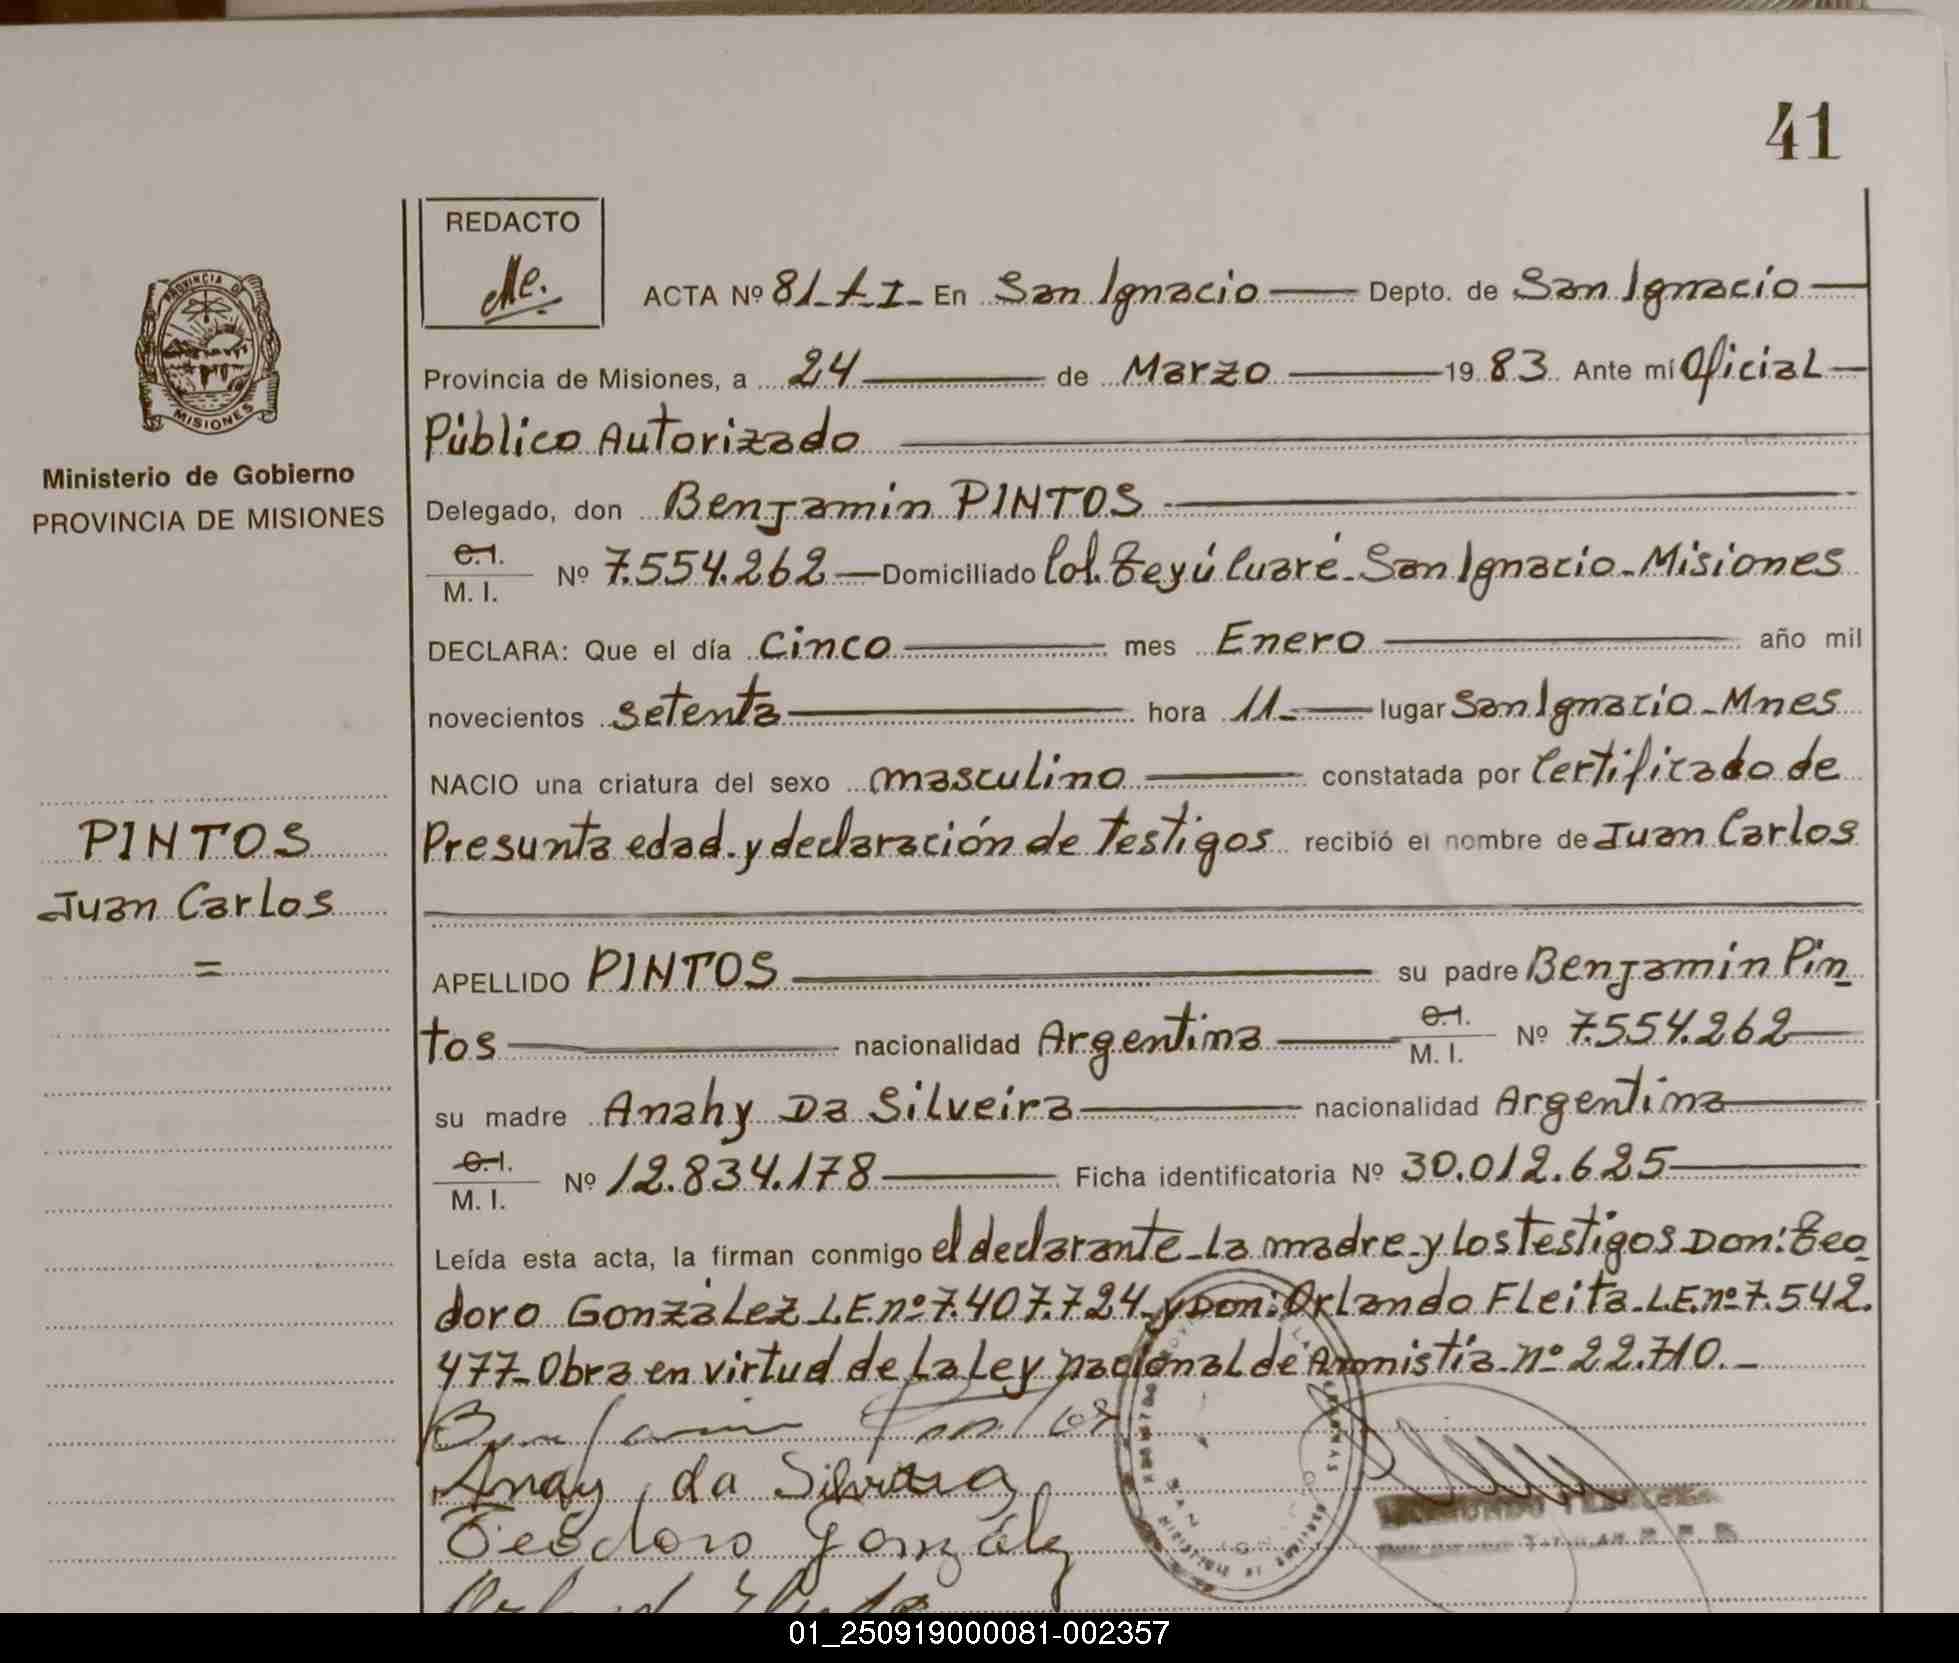 41
REDACTO
Me.
PROVINCIA DE
MISIONES
Ministerio de Gobierno
PROVINCIA DE MISIONES
PINTOS
Juan Carlos
=
ACTA Nº 81-t-I- En San Ignacio Depto. de San Ignacio
Provincia de Misiones, a 24 de Marzo 1983. Ante mí Oficial
Público Autorizado
Delegado, don Benjamin PINTOS
C.I. / M. I. Nº 7.554.262 Domiciliado Col. Teyú Cuaré - San Ignacio - Misiones
DECLARA: Que el día Cinco mes Enero año mil
novecientos setenta hora 11- lugar San Ignacio - Mnes
NACIO una criatura del sexo masculino constatada por Certificado de
Presunta edad. y declaración de testigos recibió el nombre de Juan Carlos
APELLIDO PINTOS su padre Benjamin Pin
tos nacionalidad Argentina C.I. / M. I. Nº 7.554.262
su madre Anahy Da Silveira nacionalidad Argentina
C.I. / M. I. Nº 12.834.178 Ficha identificatoria Nº 30.012.625
Leída esta acta, la firman conmigo el declarante - la madre - y los testigos Don: Teo
doro González L.E. nº 7.407.724 - y Don: Orlando Fleita - L.E. nº 7.542.
477 - Obra en virtud de la Ley nacional de Amnistia - nº 22.710. -
Benjamin Pintos
Anay da Silveira
Teodoro González
01_250919000081-002357